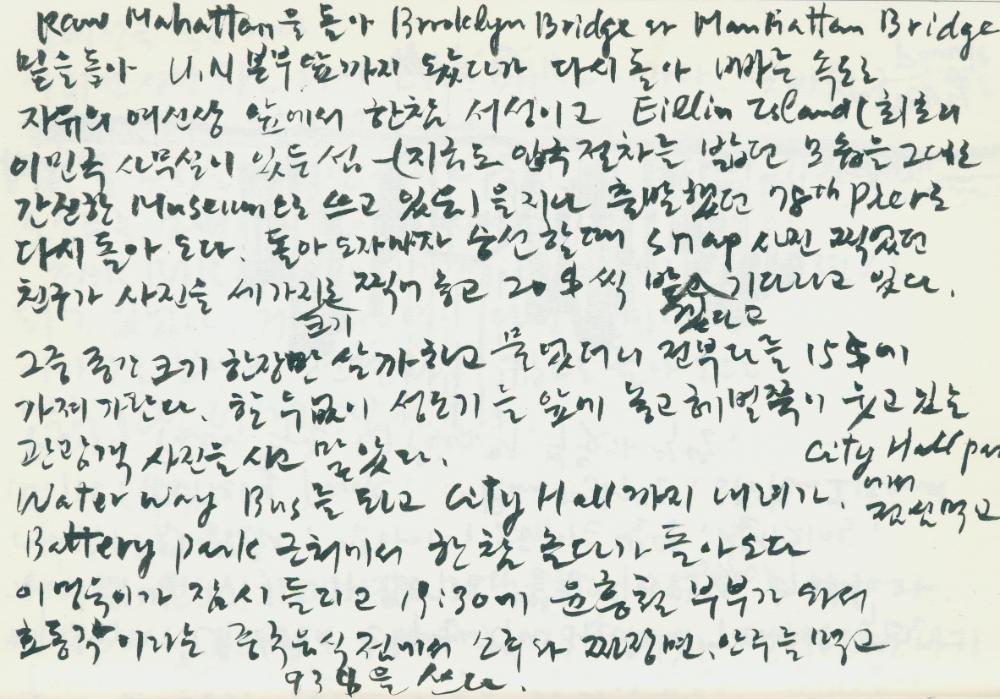 Raw Mahattan을 돌아 Brroklyn Bridge와 Manhattan Bridge
밑을돌아 U.N 본부앞까지 왔다가 다시돌아 빠른 속도로
자유의 여신상 앞에서 한참 서성이고 Eillin Island(최초의
이민국 사무실이 있든섬 - (지금도 입국절차를 밟던 모습을그대로
간직한 Museum으로 쓰고 있음)을지나 출발했던 78th Pier로
다시돌아 오다. 돌아오자마자 승선할때 snap 사진 찍었던
친구가 사진을 세가지로 찍어놓고 20$씩 기다리고 있다.
크기 겠다고
그중 중간크기 한장만 살까하고 물었더니 전부다를 15$에
가져가란다. 할수없이 놓고 웃고있는
관광객 사진을 사고 말았다.
City Hall
Water Way Bus를 타고 City Hall까지 내려가
에서 점심먹고
Battery park 근처에서 한참 놀다가 돌아오다
이명숙이가 잠시 들리고 19:30에 윤흥철 부부가 와서
효동각이라는 중국음식점에서 소주와 짜장면, 안주를먹고
93$을 쓰다.